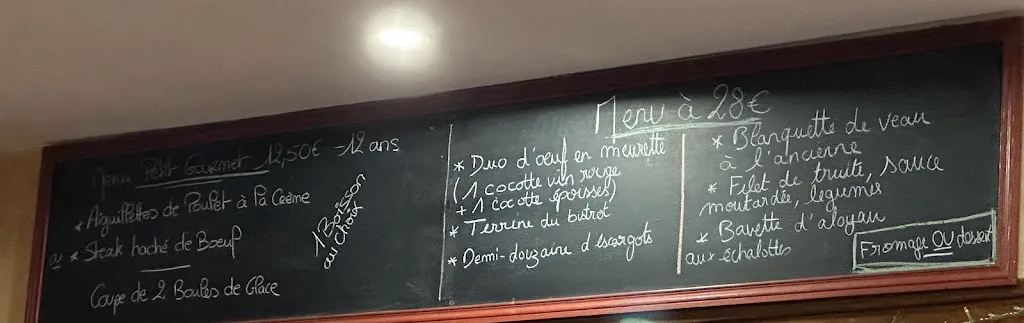 Menu Petit Gourmet 12,50€ -12 ans
* Aiguillettes de Poulet à la Crème
ou * Steak haché de Boeuf
Coupe de 2 Boules de Glace
1 Boisson
au choix
Menu à 28€
* Duo d'œuf en meurette
(1 cocotte vin rouge
+ 1 cocotte époisses)
* Terrine du bistrot
* Demi-douzaine d'escargots
* Blanquette de veau
à l'ancienne
* Filet de truite, sauce
moutarde, légumes
* Bavette d'aloyau
aux échalottes
Fromage OU dessert